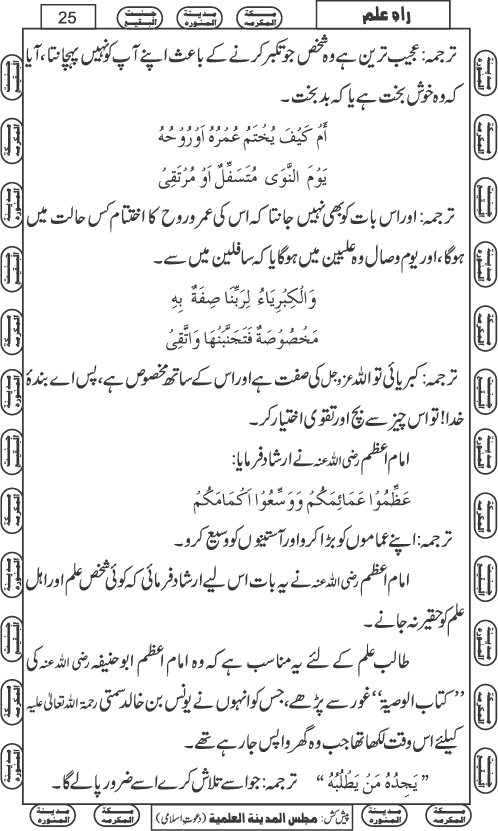 راہ علم
مكة المكرمه
مدينة المنوره
جنت البقيع
25
ترجمہ: عجیب ترین ہے وہ شخص جو تکبر کرنے کے باعث اپنے آپ کو نہیں پہچانتا، آیا
کہ وہ خوش بخت ہے یا کہ بد بخت۔
أَمْ كَيْفَ يُخْتَمُ عُمْرُهُ اَوْ رُوْحُهُ
يَوْمَ النَّوَى مُتَسَفِّلٌ اَوْ مُرْتَقِىْ
ترجمہ: اور اس بات کو بھی نہیں جانتا کہ اس کی عمر وروح کا اختتام کس حالت میں
ہوگا، اور یوم وصال وہ علیین میں ہوگا یا کہ سافلین میں سے۔
وَالْكِبْرِيَاءُ لِرَبِّنَا صِفَةٌ بِهِ
مَخْصُوْصَةٌ فَتَجَنَّبَنْهَا وَاتَّقِىْ
ترجمہ: کبریائی تو اللہ عزوجل کی صفت ہے اور اس کے ساتھ مخصوص ہے، پس اے بندۂ
خدا! تو اس چیز سے بچ اور تقوی اختیار کر۔
امام اعظم رضی اللہ عنہ نے ارشاد فرمایا:
عَظِّمُوْا عَمَائِمَكُمْ وَوَسِّعُوْا اَكْمَامَكُمْ
ترجمہ: اپنے عماموں کو بڑا کرو اور آستینوں کو وسیع کرو۔
امام اعظم رضی اللہ عنہ نے یہ بات اس لیے ارشاد فرمائی کہ کوئی شخص علم اور اہل
علم کو حقیر نہ جانے۔
طالب علم کے لئے یہ مناسب ہے کہ وہ امام اعظم ابو حنیفہ رضی اللہ عنہ کی
’’کتاب الوصیة‘‘ غور سے پڑھے، جس کو انہوں نے یونس بن خالد سمتی رحمة اللہ تعالیٰ علیہ
کیلئے اس وقت لکھا تھا جب وہ گھر واپس جارہے تھے۔
’’يَجِدُهُ مَنْ يَطْلُبُهُ‘‘ ترجمہ: جو اسے تلاش کرے اسے ضرور پالے گا۔
پیش کش: مجلس المدينة العلمية (دعوتِ اسلامی)